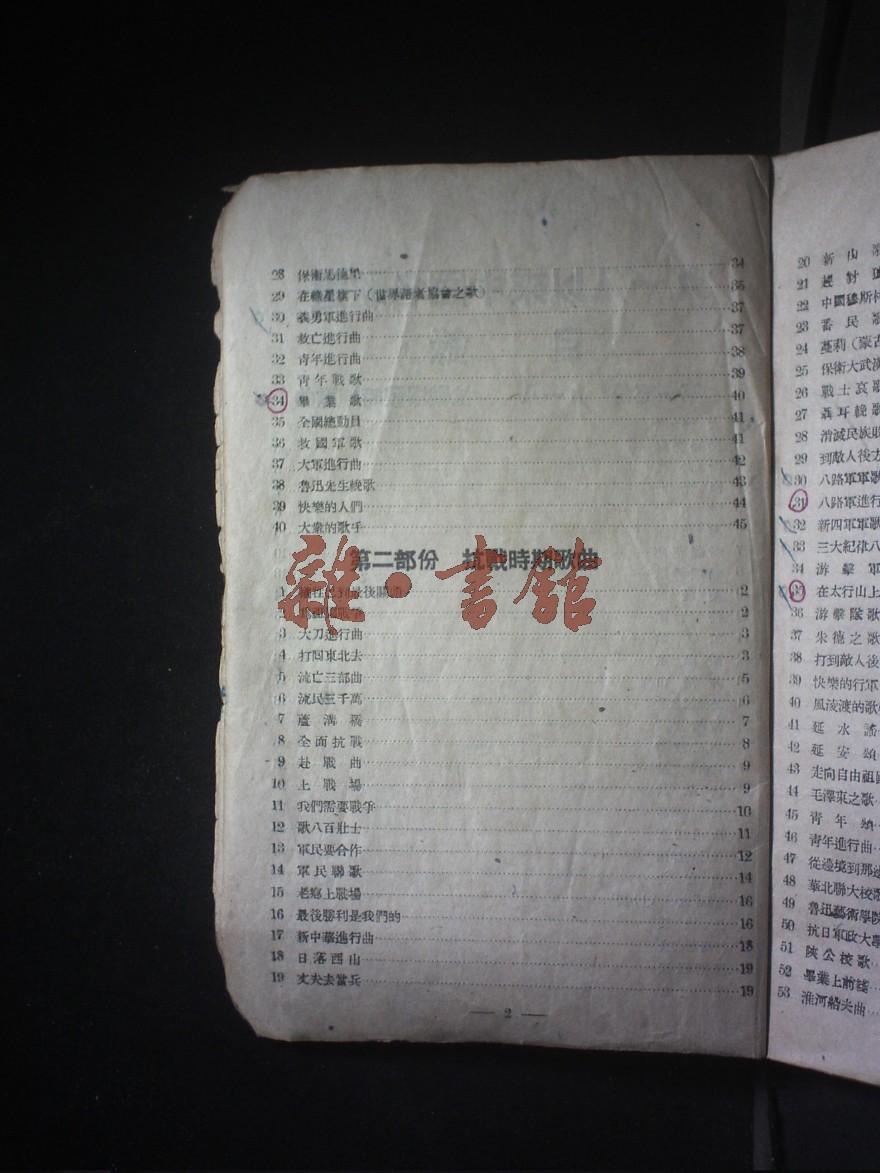 28 保衛馬德里 34
29 在綠星旗下(世界語者協會之歌) 35
30 義勇軍進行曲 37
31 救亡進行曲 37
32 青年進行曲 38
33 青年戰歌 39
34 畢業歌 40
35 全國總動員 41
36 救國軍歌 41
37 大軍進行曲 42
38 魯迅先生輓歌 43
39 快樂的人們 44
40 大衆的歌手 45
第二部份 抗戰時期歌曲
雜·書館
1 犧牲已到最後關頭 2
2 2
3 大刀進行曲 3
4 打回東北去 3
5 流亡三部曲 5
6 流民三千萬 6
7 蘆溝橋 7
8 全面抗戰 8
9 赴戰曲 9
10 上戰場 9
11 我們需要戰爭 10
12 歌八百壯士 11
13 軍民要合作 12
14 軍民聯歌 14
15 老鄉上戰場 16
16 最後勝利是我們的 16
17 新中華進行曲 18
18 日落西山 19
19 丈夫去當兵 19
— 2 —
20 新山
21 趕對
22 中國
23 番民歌
24 蔓利(蒙古
25 保衛大武漢
26 戰士哀歌
27 聶耳輓歌
28 消滅民族敗
29 到敵人後方
30 八路軍軍歌
31 八路軍進行
32 新四軍軍歌
33 三大紀律八
34 游擊軍
35 在太行山上
36 游擊隊歌
37 朱德之歌
38 打到敵人後
39 快樂的行軍
40 風淩渡的歌
41 延水謠
42 延安頌
43 走向自由祖國
44 毛澤東之歌
45 青年頌
46 青年進行曲
47 從邊境到那邊
48 華北聯大校歌
49 魯迅藝術學院
50 抗日軍政大學
51 陝公校歌
52 畢業上前綫
53 淮河船夫曲